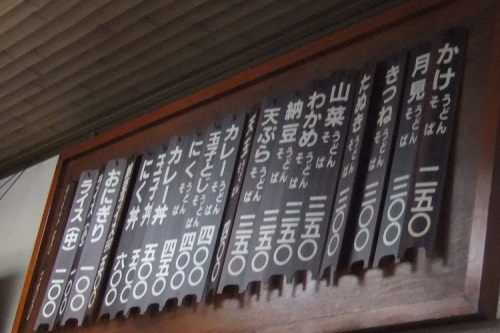 かけ うどん そば 二五〇
月見 うどん そば 三〇〇
きつね うどん そば 三〇〇
たぬき うどん そば 三〇〇
山菜 うどん そば 三〇〇
わかめ うどん そば 三五〇
納豆 うどん そば 三五〇
天ぷら うどん そば 三五〇
カレー うどん そば 四〇〇
玉子とじ うどん そば 四〇〇
にく うどん そば 四〇〇
カレー丼 四五〇
玉子丼 四五〇
にく丼 五〇〇
おにぎり 一〇〇
ライス 中 一〇〇